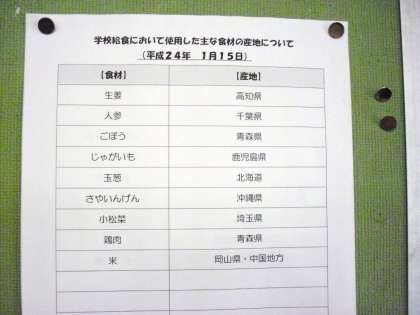 学校給食において使用した主な食材の産地について
（平成２４年　１月１５日）
【食材】 【産地】
生姜 高知県
人参 千葉県
ごぼう 青森県
じゃがいも 鹿児島県
玉葱 北海道
さやいんげん 沖縄県
小松菜 埼玉県
鶏肉 青森県
米 岡山県・中国地方